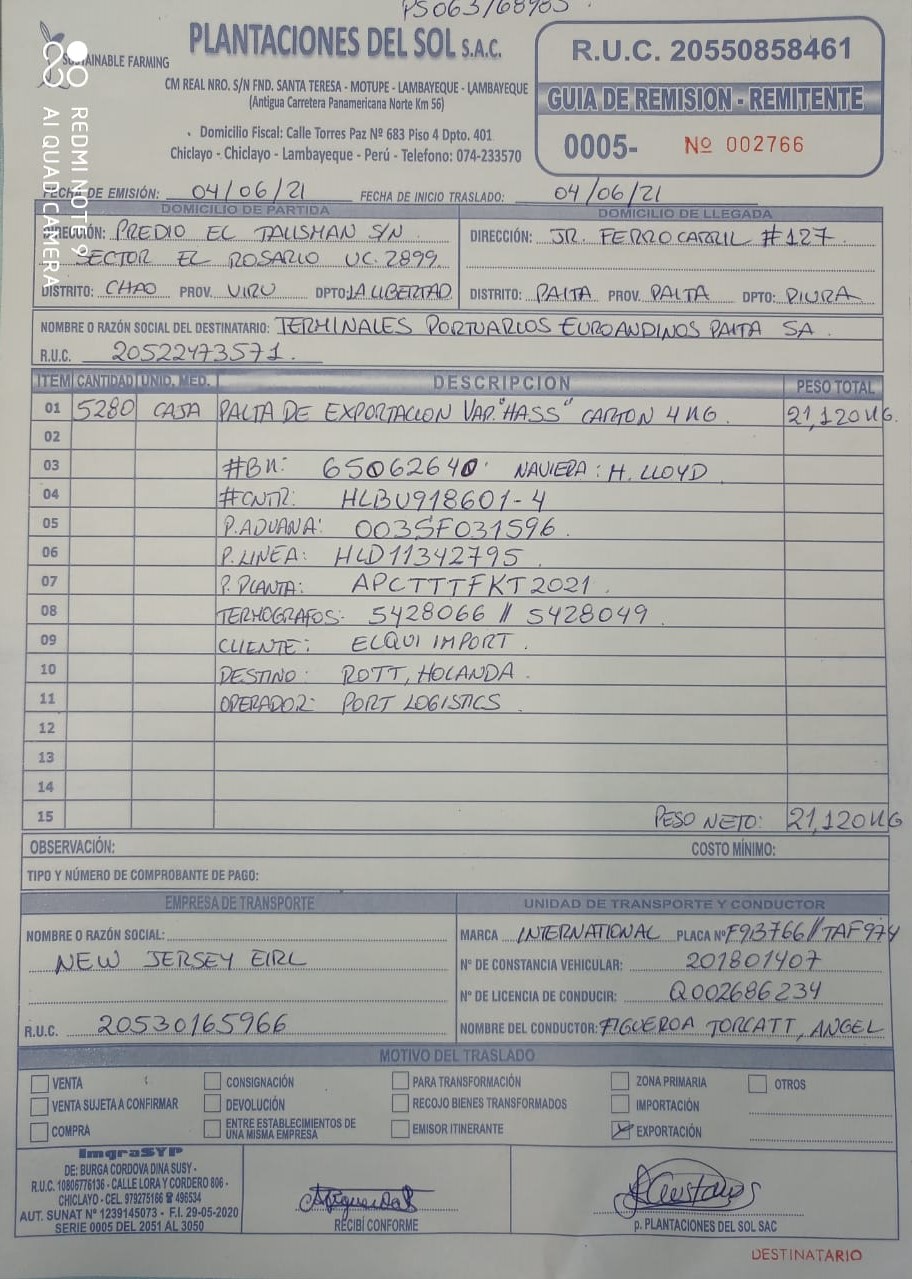 PS063/68985.
SUSTAINABLE FARMING
PLANTACIONES DEL SOL S.A.C.
CM REAL NRO. S/N FND. SANTA TERESA - MOTUPE - LAMBAYEQUE - LAMBAYEQUE
(Antigua Carretera Panamericana Norte Km 56)
Domicilio Fiscal: Calle Torres Paz Nº 683 Piso 4 Dpto. 401
Chiclayo - Chiclayo - Lambayeque - Perú - Telefono: 074-233570
R.U.C. 20550858461
GUIA DE REMISION - REMITENTE
0005- Nº 002766
REDMI NOTE 9
AI QUAD CAMERA
FECHA DE EMISIÓN: 04/06/21 FECHA DE INICIO TRASLADO: 04/06/21
DOMICILIO DE PARTIDA
DIRECCIÓN: PREDIO EL TALISMAN S/N
SECTOR EL ROSARIO UC. 2899
DISTRITO: CHAO PROV. VIRU DPTO: LA LIBERTAD
DOMICILIO DE LLEGADA
DIRECCIÓN: JR. FERROCARRIL #127
DISTRITO: PAITA PROV. PAITA DPTO: PIURA
NOMBRE O RAZÓN SOCIAL DEL DESTINATARIO: TERMINALES PORTUARIOS EUROANDINOS PAITA SA
R.U.C. 20522473571.
ITEM CANTIDAD UNID. MED. DESCRIPCION PESO TOTAL
01 5280 CAJA PALTA DE EXPORTACION VAR. "HASS" CARTON 4 KG. 21,120 KG.
02
03 #BK: 65062640 NAVIERA: H. LLOYD
04 #CNTR: HLBU918601-4
05 P. ADUANA: 003SF031596
06 P. LINEA: HLD11342795
07 P. PLANTA: APCTTTFKT2021.
08 TERMOGRAFOS: 5428066 // 5428049
09 CLIENTE: ELQUI IMPORT.
10 DESTINO: ROTT, HOLANDA.
11 OPERADOR: PORT LOGISTICS
12
13
14
15 PESO NETO: 21,120 KG
OBSERVACIÓN: COSTO MÍNIMO:
TIPO Y NÚMERO DE COMPROBANTE DE PAGO:
EMPRESA DE TRANSPORTE
NOMBRE O RAZÓN SOCIAL:
NEW JERSEY EIRL
R.U.C. 20530165966
UNIDAD DE TRANSPORTE Y CONDUCTOR
MARCA INTERNATIONAL PLACA Nº F9B766 // TAF974
N° DE CONSTANCIA VEHICULAR: 201801407
N° DE LICENCIA DE CONDUCIR: Q002686234
NOMBRE DEL CONDUCTOR: FIGUEROA TORCATT, ANGEL
MOTIVO DEL TRASLADO
VENTA CONSIGNACIÓN PARA TRANSFORMACIÓN ZONA PRIMARIA OTROS
VENTA SUJETA A CONFIRMAR DEVOLUCIÓN RECOJO BIENES TRANSFORMADOS IMPORTACIÓN
COMPRA ENTRE ESTABLECIMIENTOS DE UNA MISMA EMPRESA EMISOR ITINERANTE EXPORTACIÓN
ImgraSYP
DE: BURGA CORDOVA DINA SUSY -
R.U.C. 10806776136 - CALLE LORA Y CORDERO 806 -
CHICLAYO - CEL. 979275166 ☎ 496534
AUT. SUNAT Nº 1239145073 - F.I. 29-05-2020
SERIE 0005 DEL 2051 AL 3050
RECIBÍ CONFORME
p. PLANTACIONES DEL SOL SAC
DESTINATARIO